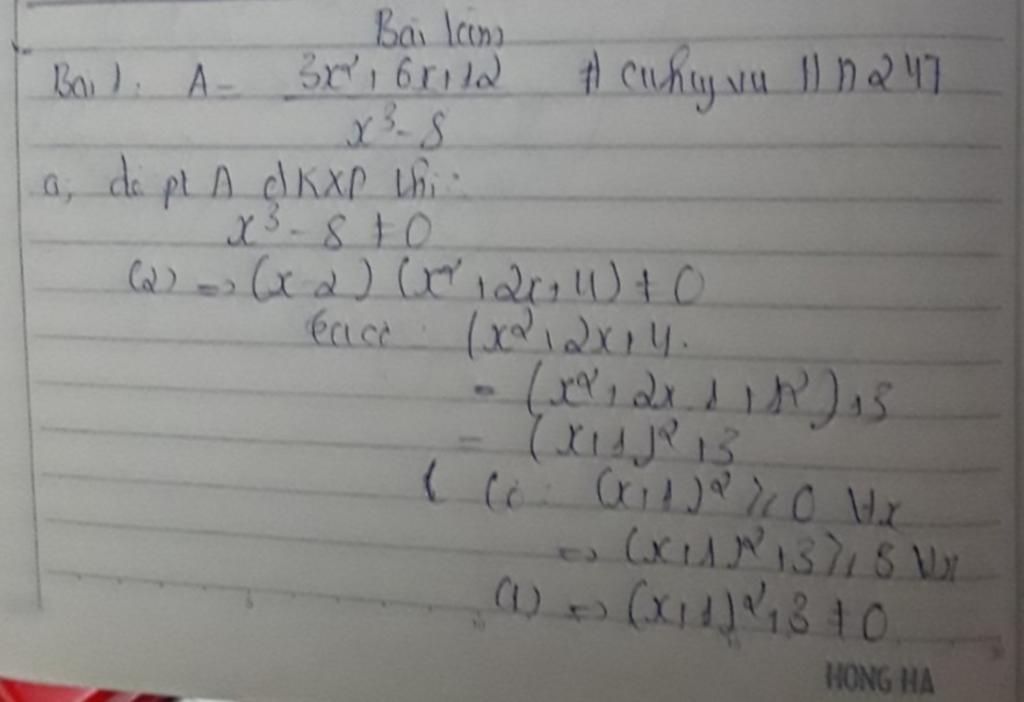 Bài làm
Bài 1: A = 3x²+6x+12 # cuhuyvu 11 n 247
x³-8
a, để pt A ĐKXĐ thì:
x³-8 ≠ 0
(2) => (x-2) (x²+2x+4) ≠ 0
(x²+2x+4.
= (x²+2x1+1²)+3
= (x+1)²+3
(x+1)² ≥ 0 ∀x
=> (x+1)²+3 ≥ 3 ∀x
(1) => (x+1)²+3 ≠ 0
HONG HA